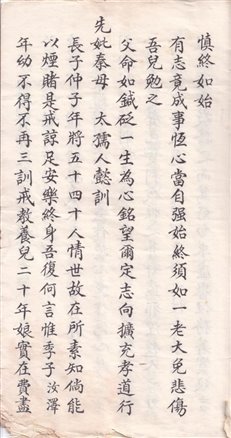 慎終如始
有志竟成事恆心當自强始終須如一老大免悲傷
吾兒勉之
父命如鍼砭一生為心銘望爾定志向擴充孝道行
先妣秦母　太孺人懿訓
長子仲子年將五十四十人情世故在所素知倘能
以煙賭是戒諒足安樂終身吾復何言惟季子汝澤
年幼不得不再三訓戒教養兒二十年娘實在費盡